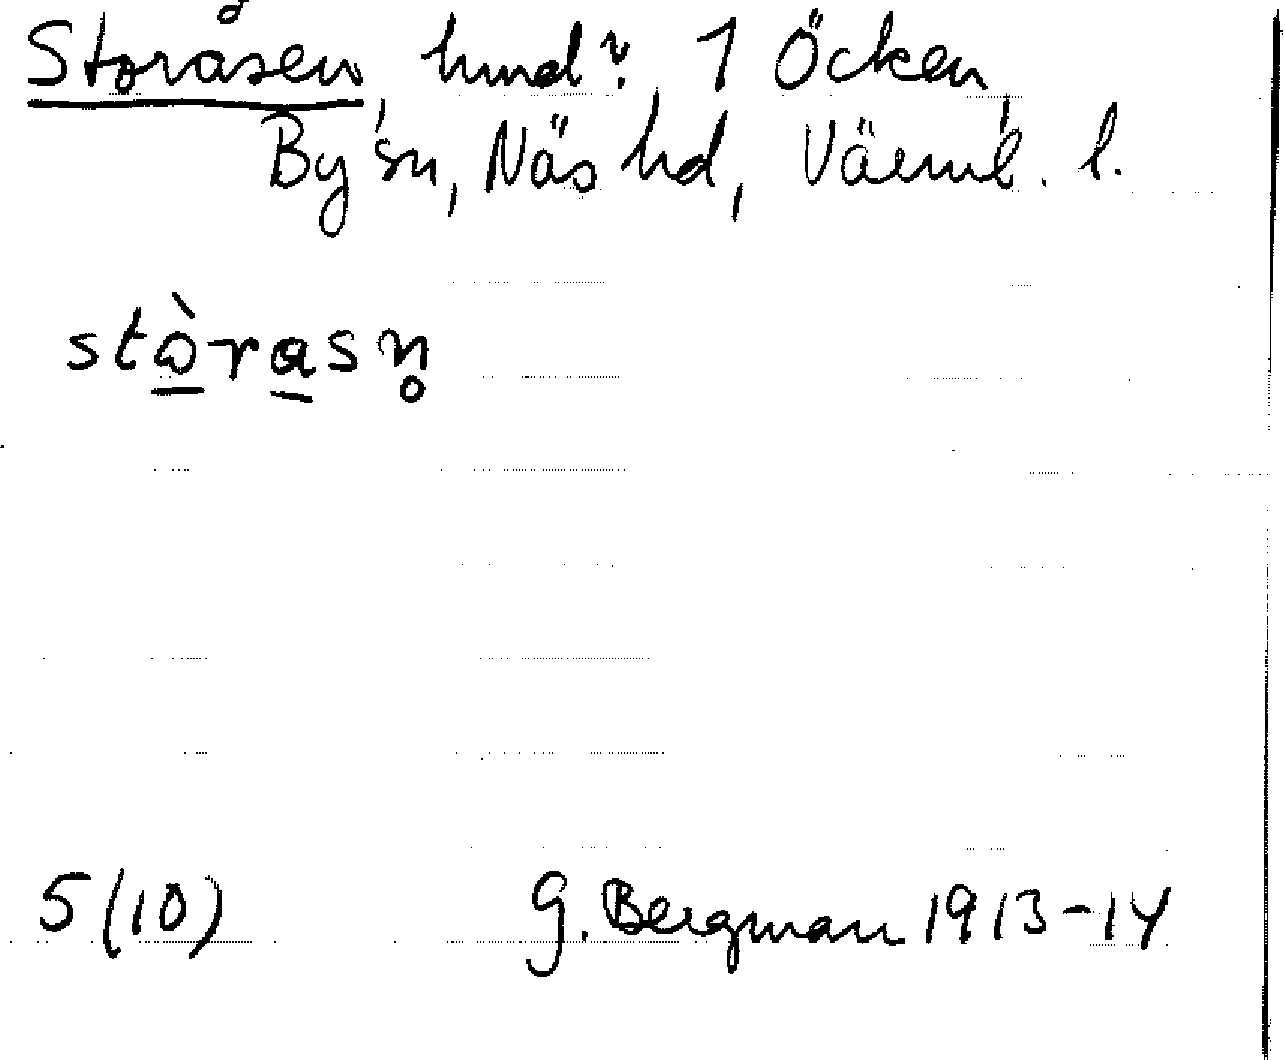 Storåsen, hmd? 1 Öcken,
By sn, Näs hd, Värml. l.
stò̠ra̠sn̥
5(10) G. Bergman 1913-14